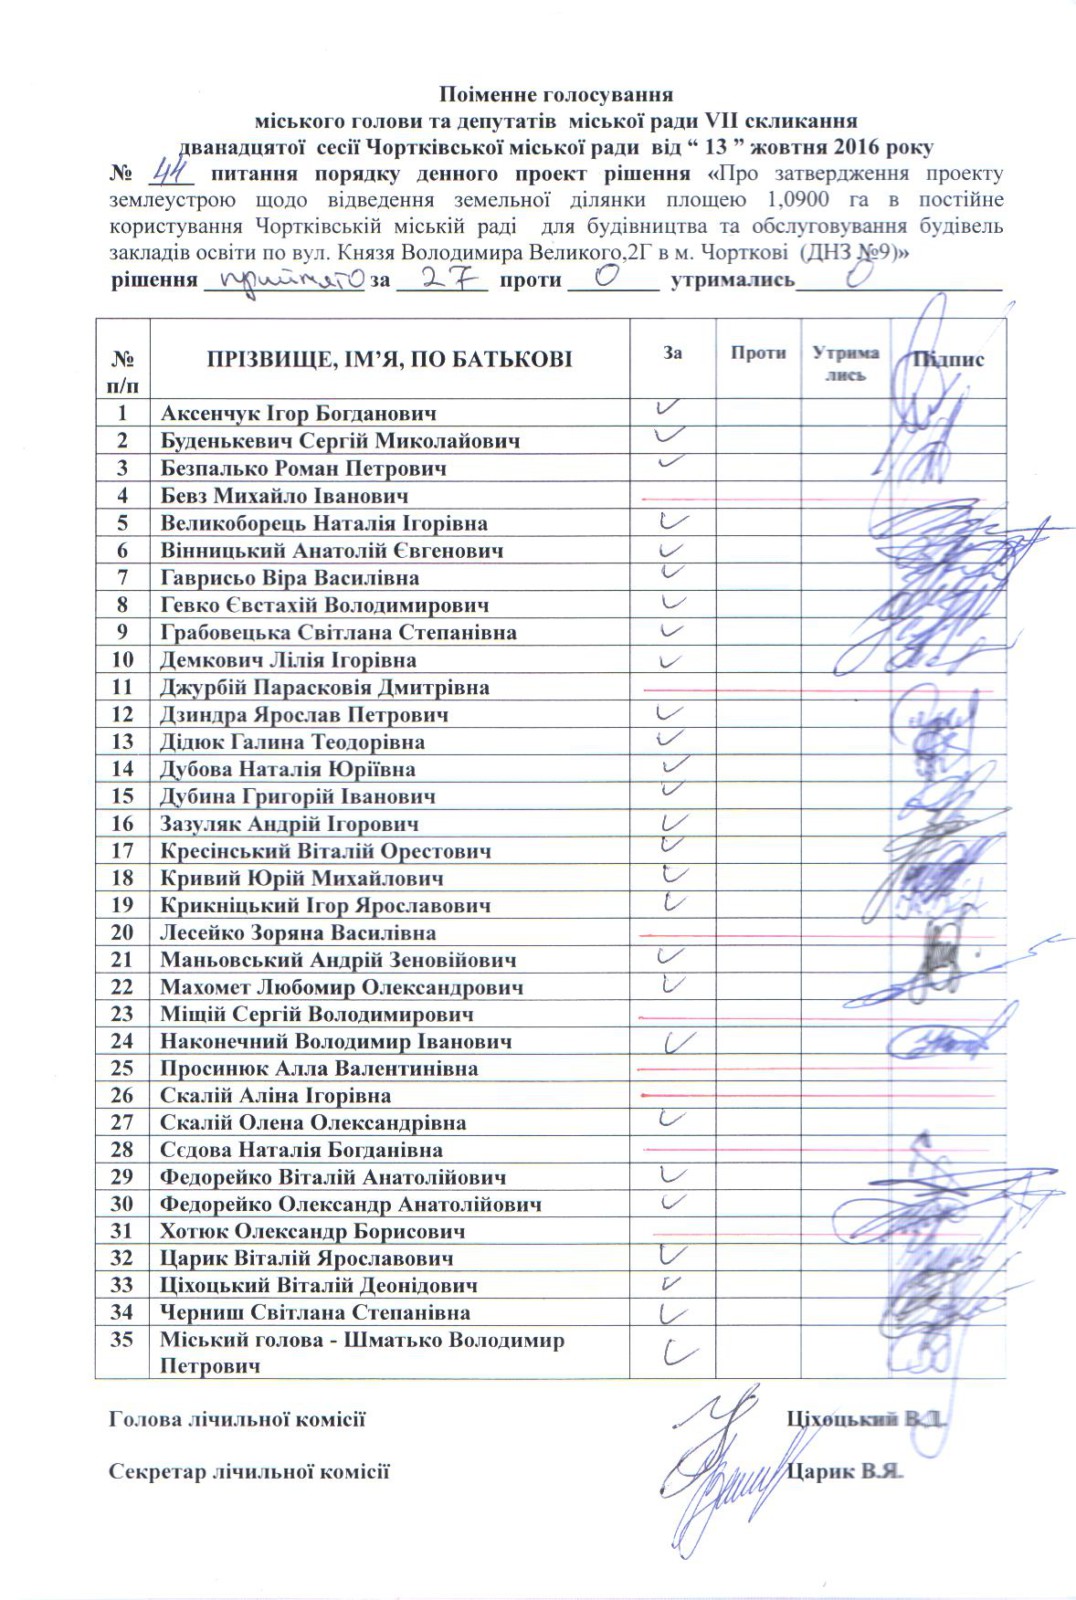 Поіменне голосування
міського голови та депутатів міської ради VII скликання
дванадцятої сесії Чортківської міської ради від “ 13 ” жовтня 2016 року
№ 44 питання порядку денного проект рішення «Про затвердження проекту
землеустрою щодо відведення земельної ділянки площею 1,0900 га в постійне
користування Чортківській міській раді для будівництва та обслуговування будівель
закладів освіти по вул. Князя Володимира Великого,2Г в м. Чорткові (ДНЗ №9)»
рішення прийнято за 27 проти 0 утримались 0
№ п/п ПРІЗВИЩЕ, ІМ’Я, ПО БАТЬКОВІ За Проти Утрима лись Підпис
1 Аксенчук Ігор Богданович
2 Буденькевич Сергій Миколайович
3 Безпалько Роман Петрович
4 Бевз Михайло Іванович
5 Великоборець Наталія Ігорівна
6 Вінницький Анатолій Євгенович
7 Гаврисьо Віра Василівна
8 Гевко Євстахій Володимирович
9 Грабовецька Світлана Степанівна
10 Демкович Лілія Ігорівна
11 Джурбій Парасковія Дмитрівна
12 Дзиндра Ярослав Петрович
13 Дідюк Галина Теодорівна
14 Дубова Наталія Юріївна
15 Дубина Григорій Іванович
16 Зазуляк Андрій Ігорович
17 Кресінський Віталій Орестович
18 Кривий Юрій Михайлович
19 Крикніцький Ігор Ярославович
20 Лесейко Зоряна Василівна
21 Маньовський Андрій Зеновійович
22 Махомет Любомир Олександрович
23 Міщій Сергій Володимирович
24 Наконечний Володимир Іванович
25 Просинюк Алла Валентинівна
26 Скалій Аліна Ігорівна
27 Скалій Олена Олександрівна
28 Сєдова Наталія Богданівна
29 Федорейко Віталій Анатолійович
30 Федорейко Олександр Анатолійович
31 Хотюк Олександр Борисович
32 Царик Віталій Ярославович
33 Ціхоцький Віталій Деонідович
34 Черниш Світлана Степанівна
35 Міський голова - Шматько Володимир
Петрович
Голова лічильної комісії Ціхоцький В.Д.
Секретар лічильної комісії Царик В.Я.